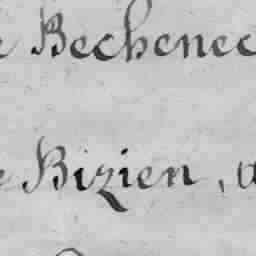 e Bechenec
e Bizien, a